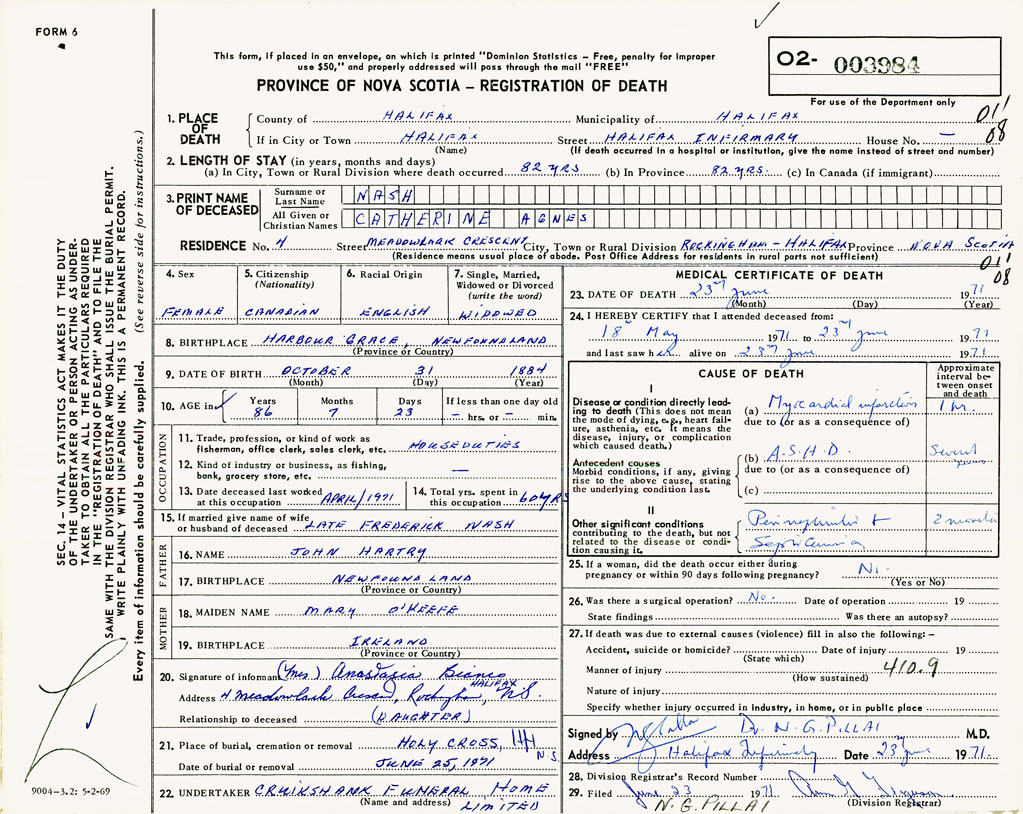 FORM 6
This form, if placed in an envelope, on which is printed "Dominion Statistics – Free, penalty for improper
use $50," and properly addressed will pass through the mail "FREE"
02- 003984
For use of the Department only
PROVINCE OF NOVA SCOTIA – REGISTRATION OF DEATH
01'
08
1. PLACE OF DEATH
County of HALIFAX Municipality of HALIFAX
If in City or Town HALIFAX Street HALIFAX INFIRMARY House No. –
(Name) (If death occurred in a hospital or institution, give the name instead of street and number)
2. LENGTH OF STAY (in years, months and days)
(a) In City, Town or Rural Division where death occurred 82 YRS (b) In Province 82 YRS. (c) In Canada (if immigrant)
3. PRINT NAME OF DECEASED
Surname or Last Name NASH
All Given or Christian Names CATHERINE AGNES
RESIDENCE No. 4 Street MEADOWLARK CRESCENT City, Town or Rural Division ROCKINGHAM – HALIFAX Province NOVA SCOTIA
(Residence means usual place of abode. Post Office Address for residents in rural parts not sufficient)
01'
08
4. Sex FEMALE
5. Citizenship (Nationality) CANADIAN
6. Racial Origin ENGLISH
7. Single, Married, Widowed or Divorced (write the word) WIDOWED
8. BIRTHPLACE HARBOUR GRACE, NEWFOUNDLAND
(Province or Country)
9. DATE OF BIRTH OCTOBER 31 1884
(Month) (Day) (Year)
10. AGE in Years 86 Months 7 Days 23 If less than one day old – hrs. or – min.
OCCUPATION
11. Trade, profession, or kind of work as
fisherman, office clerk, sales clerk, etc. HOUSEDUTIES
12. Kind of industry or business, as fishing,
bank, grocery store, etc. —
13. Date deceased last worked
at this occupation APRIL/1971
14. Total yrs. spent in
this occupation 60 YRS
15. If married give name of wife
or husband of deceased LATE FREDERICK NASH
FATHER
16. NAME JOHN HARTRY
17. BIRTHPLACE NEWFOUNDLAND
(Province or Country)
MOTHER
18. MAIDEN NAME MARY O'KEEFE
19. BIRTHPLACE IRELAND
(Province or Country)
20. Signature of informant (Mrs) Anastasia
Address 4 Meadowlark Crescent, Rockingham, HALIFAX N.S.
Relationship to deceased (DAUGHTER)
21. Place of burial, cremation or removal HOLY CROSS, N.S.
Date of burial or removal JUNE 25, 1971
22. UNDERTAKER CRUIKSHANK FUNERAL HOME
(Name and address) LIMITED
MEDICAL CERTIFICATE OF DEATH
23. DATE OF DEATH 23rd June 1971
(Month) (Day) (Year)
24. I HEREBY CERTIFY that I attended deceased from:
18th May 1971 to 23rd June 1971
and last saw her alive on 23rd June 1971
CAUSE OF DEATH
Approximate interval between onset and death
I
Disease or condition directly leading to death (This does not mean the mode of dying, e.g., heart failure, asthenia, etc. It means the disease, injury, or complication which caused death.)
(a) Myocardial infarction 1 hr.
due to (or as a consequence of)
Antecedent causes
Morbid conditions, if any, giving rise to the above cause, stating the underlying condition last.
(b) A.S.H.D. Several years
due to (or as a consequence of)
(c)
II
Other significant conditions contributing to the death, but not related to the disease or condition causing it.
Perinephritis + 2 months
Septicaemia
25. If a woman, did the death occur either during
pregnancy or within 90 days following pregnancy? No.
(Yes or No)
26. Was there a surgical operation? No. Date of operation 19
State findings Was there an autopsy?
27. If death was due to external causes (violence) fill in also the following: –
Accident, suicide or homicide? Date of injury 19
(State which)
Manner of injury 410.9
(How sustained)
Nature of injury
Specify whether injury occurred in industry, in home, or in public place
Signed by Dr. N. G. PILLAI M.D.
Address Halifax Infirmary Date 23rd June 1971.
28. Division Registrar's Record Number
29. Filed June 23 1971
(Division Registrar)
N. G. PILLAI
SEC. 14 – VITAL STATISTICS ACT MAKES IT THE DUTY
OF THE UNDERTAKER OR PERSON ACTING AS UNDER-
TAKER TO OBTAIN ALL THE PARTICULARS REQUIRED
IN THE "REGISTRATION OF DEATH" AND TO FILE THE
SAME WITH THE DIVISION REGISTRAR WHO SHALL ISSUE THE BURIAL PERMIT.
WRITE PLAINLY WITH UNFADING INK. THIS IS A PERMANENT RECORD.
Every item of information should be carefully supplied. (See reverse side for instructions.)
9004-3.2: 5-2-69